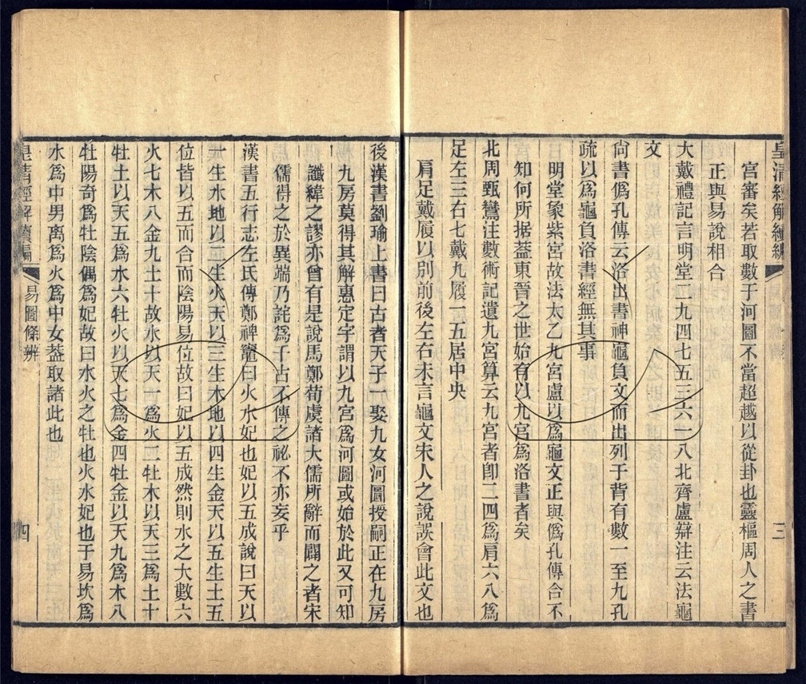 皇清經解續編
宮審矣若取數于河圖不當超越以從卦也靈樞周人之書
正與易說相合
大戴禮記言明堂二九四七五三六一八北齊盧辯注云法龜
文
尚書僞孔傳云洛出書神龜負文而出列于背有數一至九孔
疏以爲龜負洛書經無其事
明堂象紫宮故法太乙九宮盧以爲龜文正與僞孔傳合不
知何所據蓋東晉之世始有以九宮爲洛書者矣
北周甄鸞注數術記遺九宮算云九宮者卽二四爲肩六八爲
足左三右七戴九履一五居中央
肩足戴履以別前後左右未言龜文宋人之說誤會此文也
三
後漢書劉瑜上書曰古者天子一娶九女河圖授嗣正在九房
九房莫得其解惠定宇謂以九宮爲河圖或始於此又可知
讖緯之謬亦曾有是說馬鄭荀虞諸大儒所辭而闢之者宋
儒得之於異端乃詫爲千古不傳之祕不亦妄乎
漢書五行志左氏傳鄭裨竈曰火水妃也妃以五成說曰天以
一生水地以二生火天以三生木地以四生金天以五生土五
位皆以五而合而陰陽易位故曰妃以五成然則水之大數六
火七木八金九土十故水以天一爲火二牡木以天三爲土十
牡土以天五爲水六牡火以天七爲金四牡金以天九爲木八
牡陽奇爲牡陰偶爲妃故曰水火之牡也火水妃也于易坎爲
水爲中男离爲火爲中女蓋取諸此也
皇清經解續編
易圖條辨
四